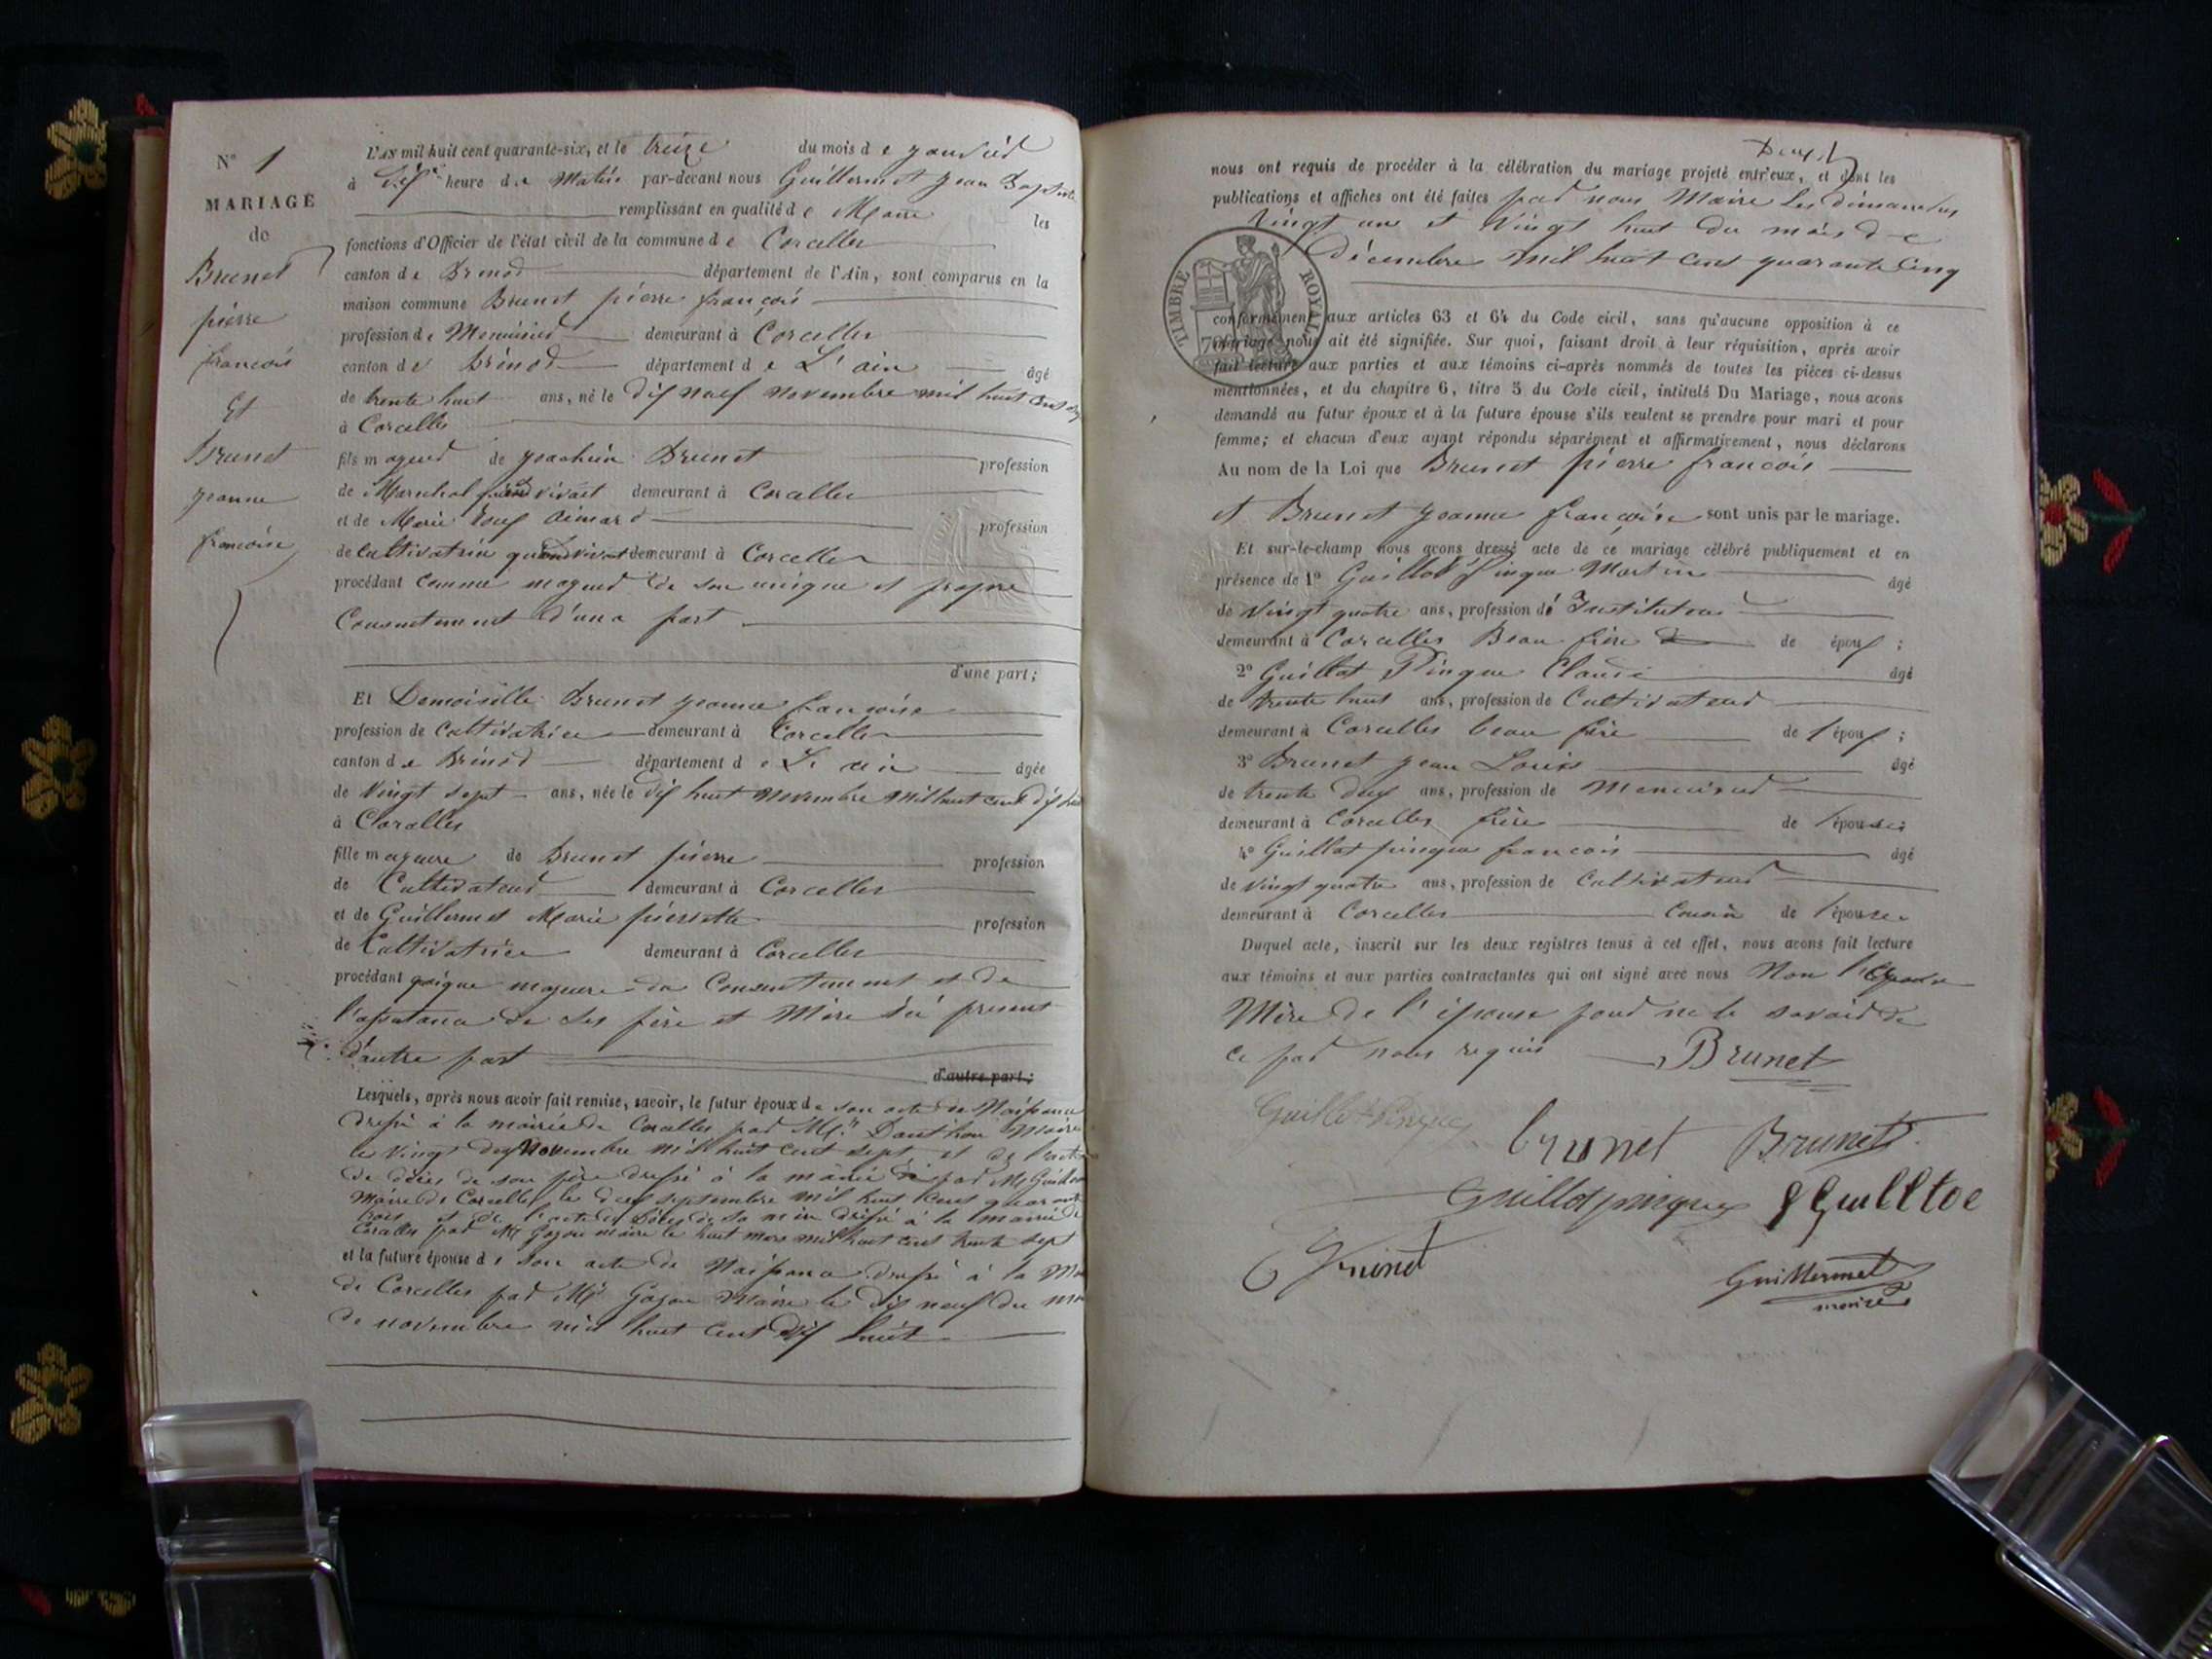 N° 1
MARIAGE
de
Brunet
pierre
francois
Et
Brunet
jeanne
francoise
L'AN mil huit cent quarante-six, et le treize du mois d e janvier
à dix heure d u Matin par-devant nous Guillermet jean Baptiste
remplissant en qualité d e Maire les
fonctions d'Officier de l'état civil de la commune d e Corcelles
canton d e Brenod département de l'Ain, sont comparus en la
maison commune Brunet pierre francois
profession d e Menuisier demeurant à Corcelles
canton d e Brénod département d e L'ain âgé
de trente huit ans, né le dix neuf novembre mil huit cent
à Corcelles
fils mageur de joachim Brunet profession
de Marechal quand vivait demeurant à Corcelles
et de Marie aimard profession
de Cultivatrice quand vivait demeurant à Corcelles
procédant comme mageur de son unique et propre
Consentement d'une part
d'une part;
Et Demoiselle Brunet jeanne françoise
profession de Cultivatrice demeurant à Corcelles
canton d e Brénod département d e L'ain âgée
de Vingt sept ans, née le dix huit novembre mil huit cent dix huit
à Corcelles
fille mageure de Brunet pierre profession
de Cultivateur demeurant à Corcelles
et de Guillermet Marie pierrette profession
de Cultivatrice demeurant à Corcelles
procédant quoique mageure du Consentement et de
l'assistance de ses père et Mère ici present
d'autre part
d'autre part;
Lesquels, après nous avoir fait remise, savoir, le futur époux d e son acte de Naissance
dressé à la mairie de Corcelles par Mr Dauthon Maire
le Vingt deux Novembre mil huit cent sept et de l'acte
de décès de son père dressé à la mairie par Mr
Maire de Corcelles le deux septembre mil huit cent quarante
trois et de l'acte de Décès de sa mère dressé à la mairie de
Corcelles par Mr Gojon maire le huit mars mil huit cent trente sept
et la future épouse d e son acte de Naissance dressé à la
de Corcelles par Mr Gojon Maire le dix neuf du
de novembre mil huit cent dix huit
Deux
nous ont requis de procéder à la célébration du mariage projeté entr'eux, et dont les
publications et affiches ont été faites par nous Maire les dimanches
Vingt un et Vingt huit du mois de
Décembre mil huit cent quarante cinq
TIMBRE ROYAL
conformément aux articles 63 et 64 du Code civil, sans qu'aucune opposition à ce
mariage nous ait été signifiée. Sur quoi, faisant droit à leur réquisition, après avoir
fait lecture aux parties et aux témoins ci-après nommés de toutes les pièces ci-dessus
mentionnées, et du chapitre 6, titre 5 du Code civil, intitulé Du Mariage, nous avons
demandé au futur époux et à la future épouse s'ils veulent se prendre pour mari et pour
femme; et chacun d'eux ayant répondu séparément et affirmativement, nous déclarons
Au nom de la Loi que Brunet pierre francois
et Brunet jeanne francoise sont unis par le mariage.
Et sur-le-champ nous avons dressé acte de ce mariage célébré publiquement et en
présence de 1° Guillot Pinque Martin âgé
de Vingt quatre ans, profession d' Instituteur
demeurant à Corcelles Beau frère de époux;
2° Guillot Pinque Claude âgé
de trente huit ans, profession de Cultivateur
demeurant à Corcelles beau frère de l'époux;
3° Brunet jean Louis âgé
de trente deux ans, profession de Menuisier
demeurant à Corcelles frère de l'épouse;
4° Guillot pinque francois âgé
de vingt quatre ans, profession de Cultivateur
demeurant à Corcelles Cousin de l'épouse
Duquel acte, inscrit sur les deux registres tenus à cet effet, nous avons fait lecture
aux témoins et aux parties contractantes qui ont signé avec nous Non l'Epouse
Mère de l'épouse pour ne le savoir de
ce par nous requis Brunet
Guillot Pinque
brunet Brunet
guillotpinque
Brunet
Guillermet
maire